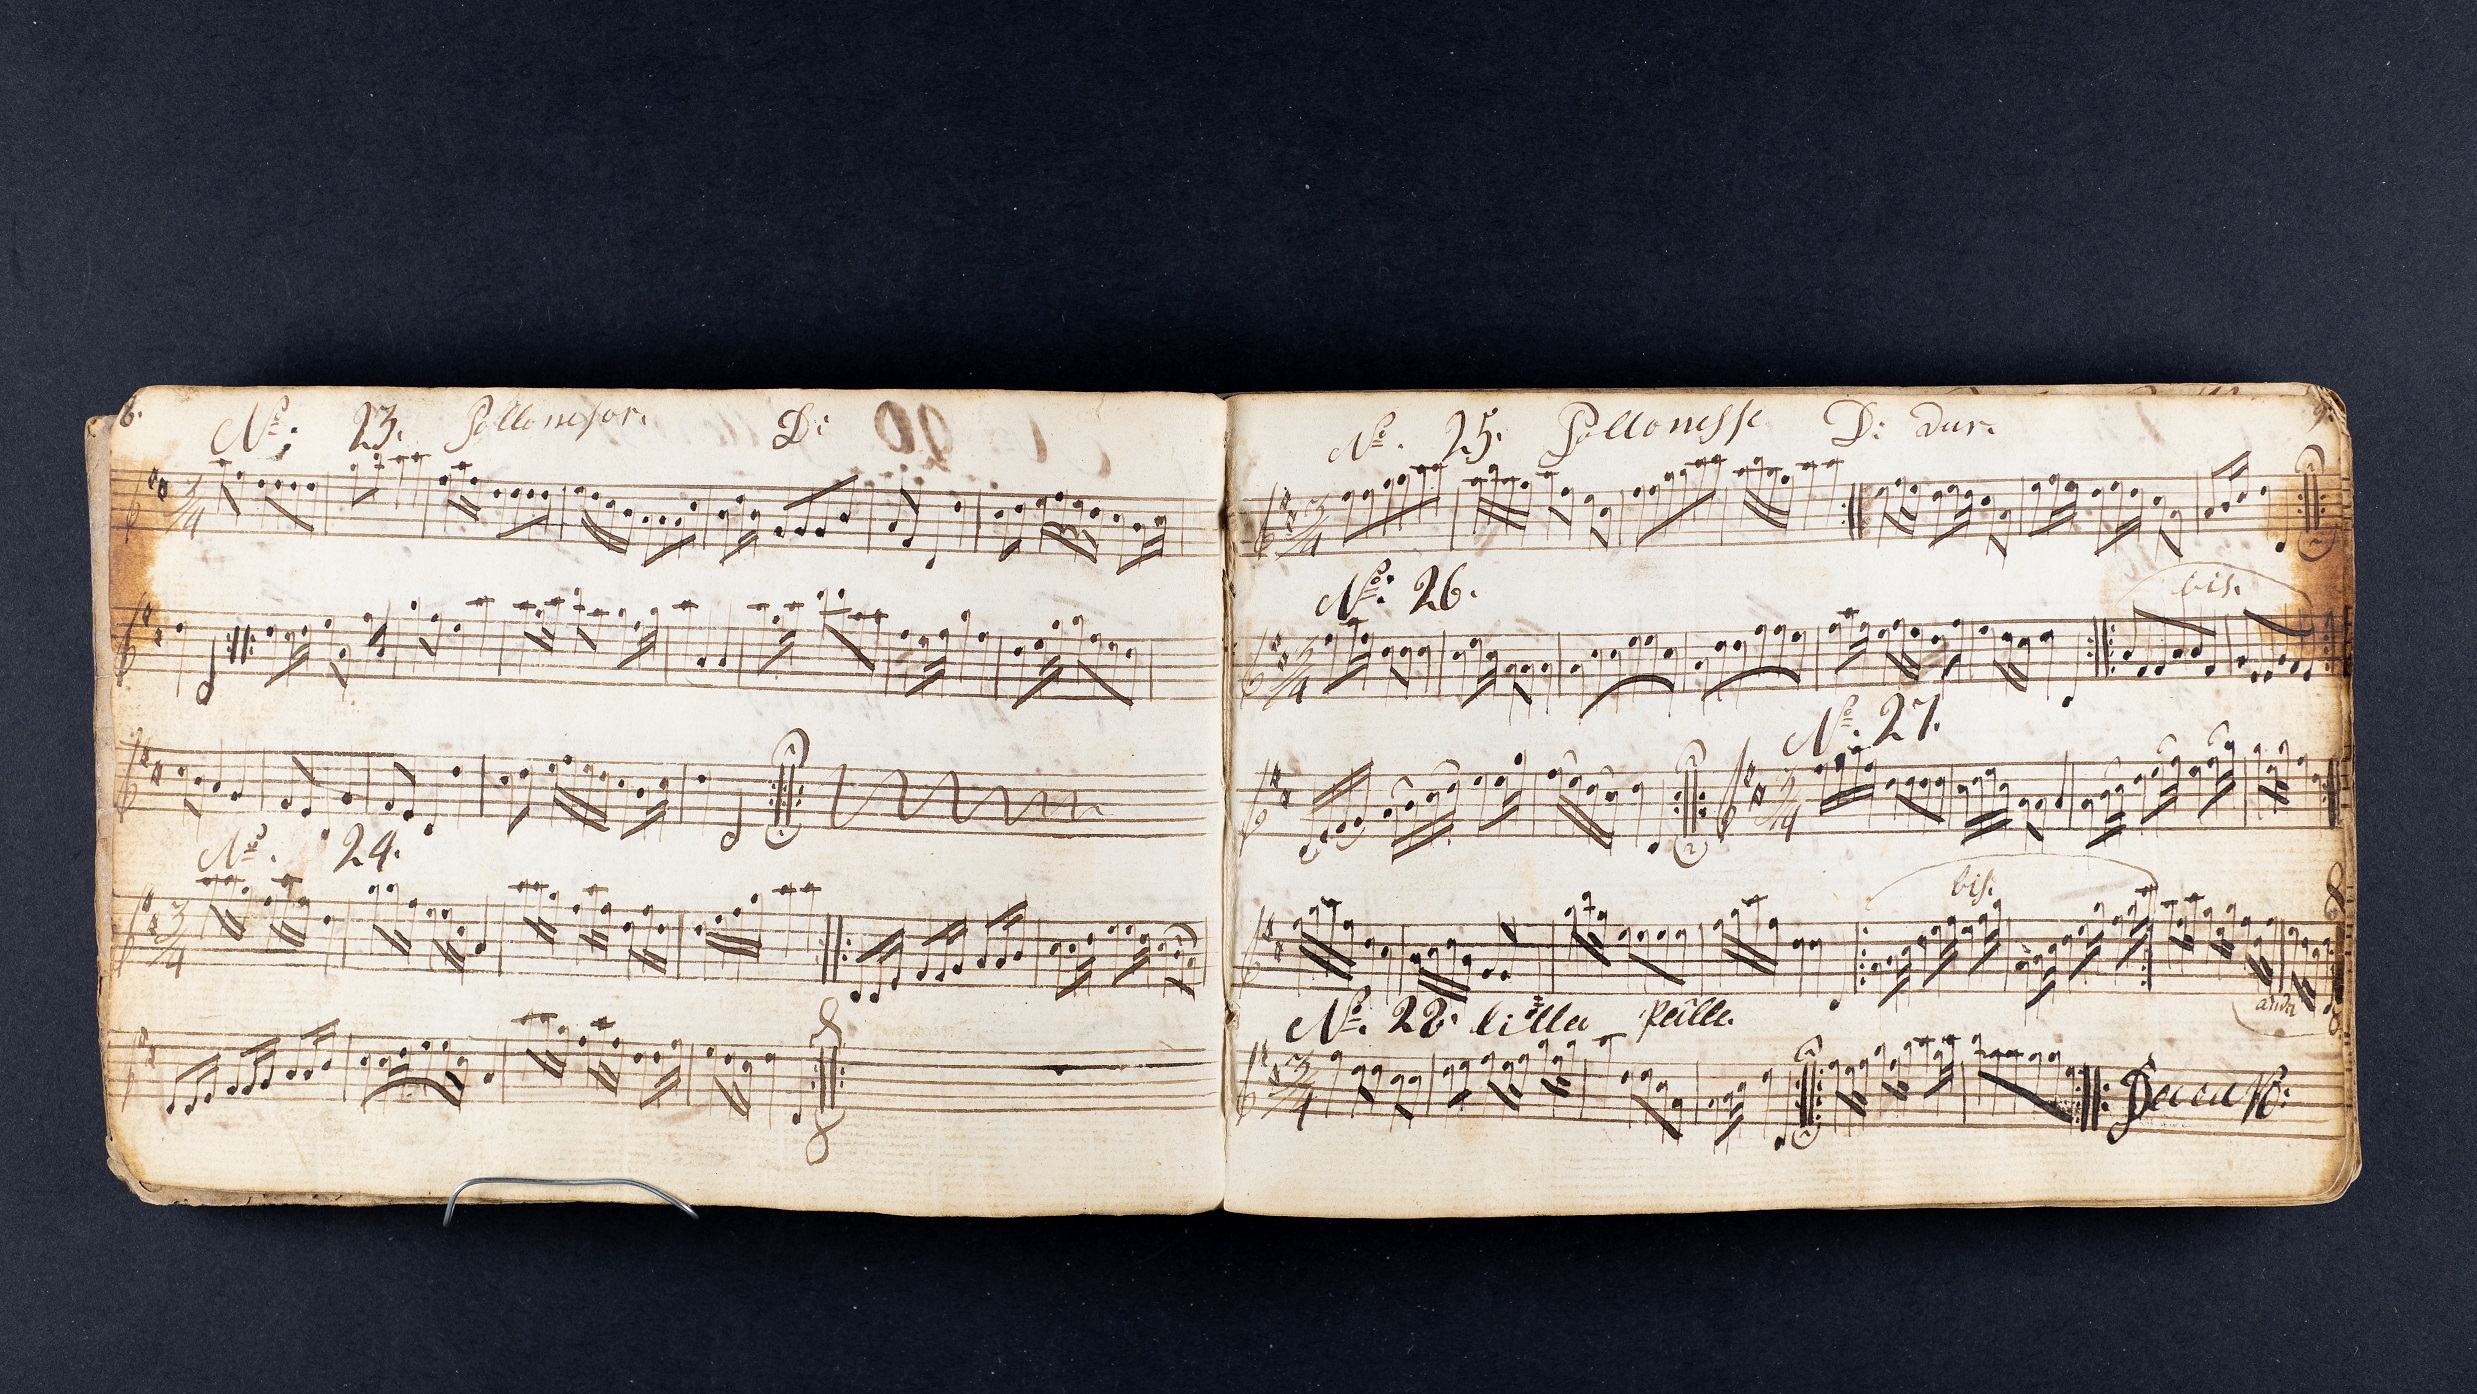 8.
Nº: 23. Pollonesor. D:
3/4
Nº. 24.
3/4
9.
Nº. 25. Pollonesse D: dur.
3/4
Nº: 26.
bis.
3/4
Nº. 27.
3/4
bis.
Nº. 28. lilla
3/4
Da